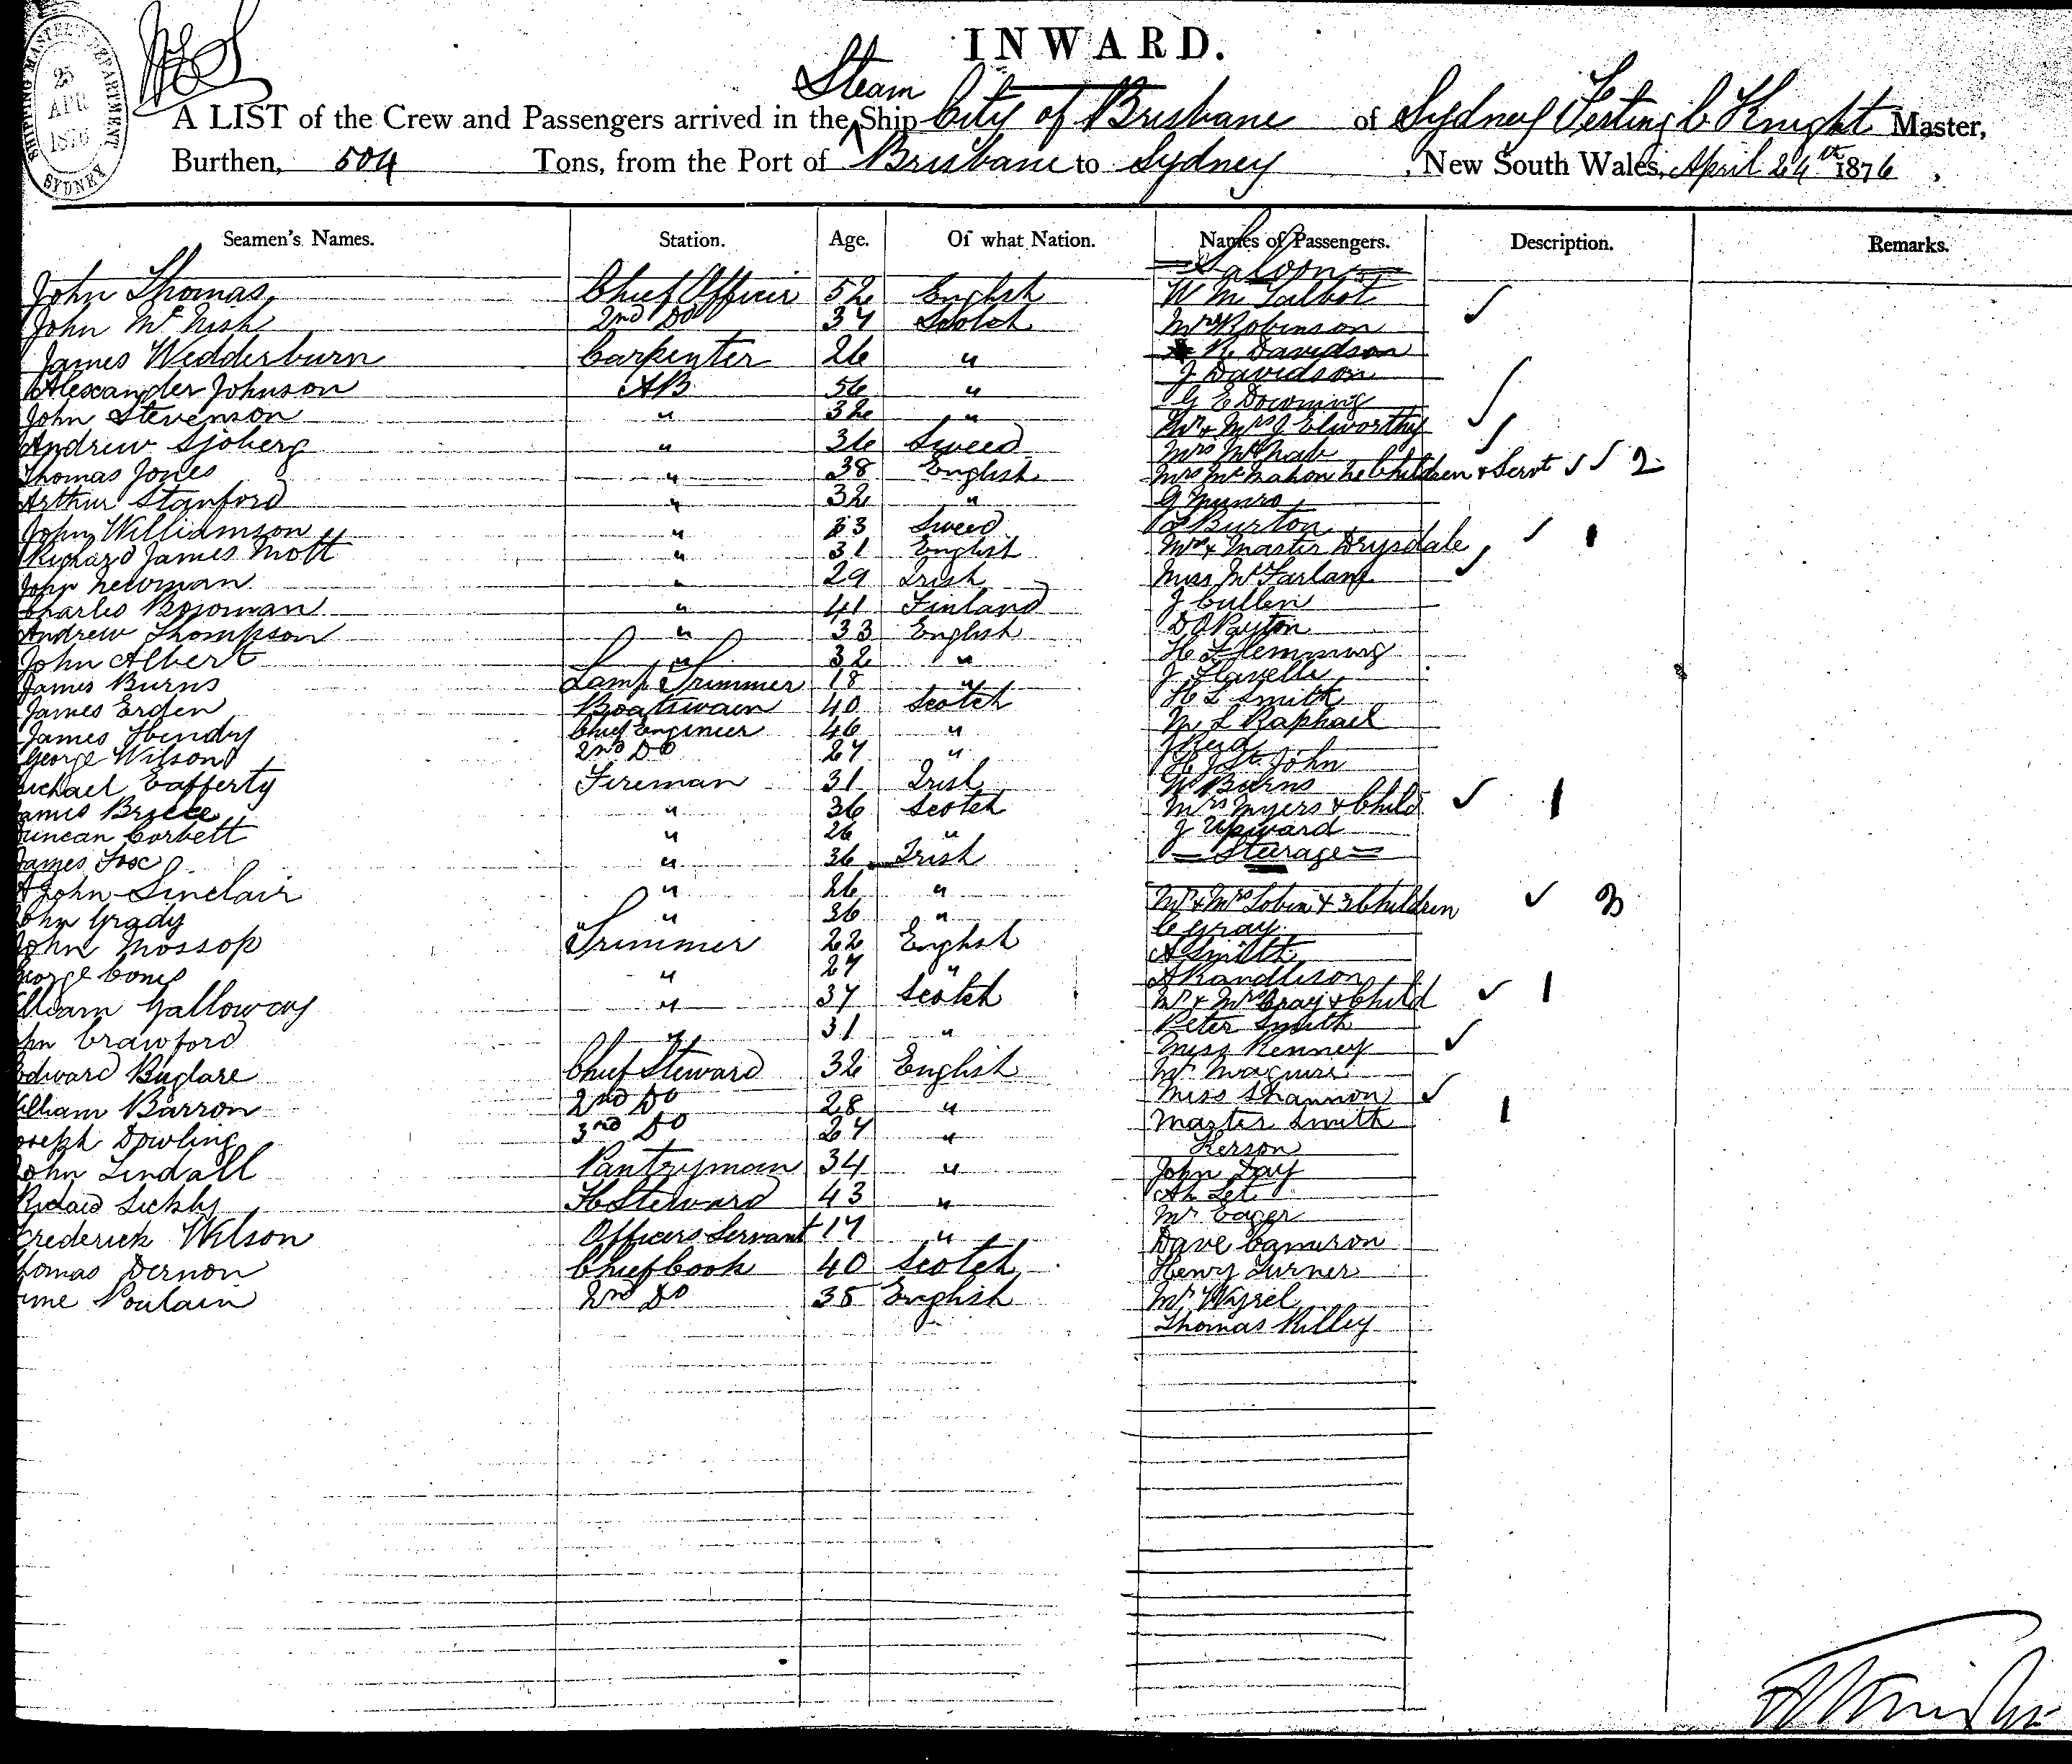 INWARD.
SHIPPING MASTER'S DEPARTMENT
25
APR
1876
SYDNEY
Steam
A LIST of the Crew and Passengers arrived in the Ship City of Brisbane of Sydney Festing C Knight Master,
Burthen, 504 Tons, from the Port of Brisbane to Sydney, New South Wales, April 24th 1876,
Seamen's Names. Station. Age. Of what Nation. Names of Passengers. Description. Remarks.
= Saloon =
John Thomas Chief Officer 52 English W M Talbot ✓
John McNish 2nd Do 37 Scotch Mrs Robinson
James Wedderburn Carpenter 26 " R Davidson
Alexander Johnson AB 56 " J Davidson
John Stevenson " 32 " G E Downing
Andrew Sjoberg " 36 Sweed Mr & Mrs J Elworthy ✓
Thomas Jones " 38 English Mrs McNab ✓
Arthur Stanford " 32 " Mrs McMahon 2 Children & Servt ✓ ✓ 2
John Williamson " 33 Sweed G Munro
Richard James Mott " 31 English L Burton
John Newman " 29 Irish Mrs & Master Drysdale ✓ 1
Charles Bojoman " 41 Finland Miss McFarlane ✓
Andrew Thompson " 33 English J Cullen
John Albert " 32 " D O Payton
James Burns Lamp Trimmer 18 " H Flemming
James Erden Boatswain 40 Scotch J Flavelle
James Hendry Chief Engineer 46 " H L Smith
George Wilson 2nd Do 27 " M L Raphael
Michael Cafferty Fireman 31 Irish J Reid
James Bryce " 36 Scotch H J St. John
Duncan Corbett " 26 " W Burns
James Fox " 36 Irish Mrs Myers & Child ✓ 1
John Sinclair " 26 " J Upward
= Sturage =
John Grady " 36 " Mr & Mrs Tobin & 3 Children ✓ 3
John Mossop Trimmer 22 English C Gray
George " 27 " A Smith
William Galloway " 37 Scotch A Randleson
John Crawford " 31 " Mr & Mrs Gray & Child ✓ 1
Peter Smith
Miss Kenney ✓
Edward Buglare Chief Steward 32 English Mr Maguire
William Barron 2nd Do 28 " Miss Shannon ✓
Joseph Dowling 3rd Do 27 " Master Smith 1
Kerson
John Lindall Pantryman 34 " John Day
Richard F Steward 43 " Ah Let
Mr Eager
Frederick Wilson Officers Servant 17 " Dave Cameron
Thomas Dernon Chief Cook 40 Scotch Henry Turner
Poulain 2nd Do 35 English Mr
Thomas Killey